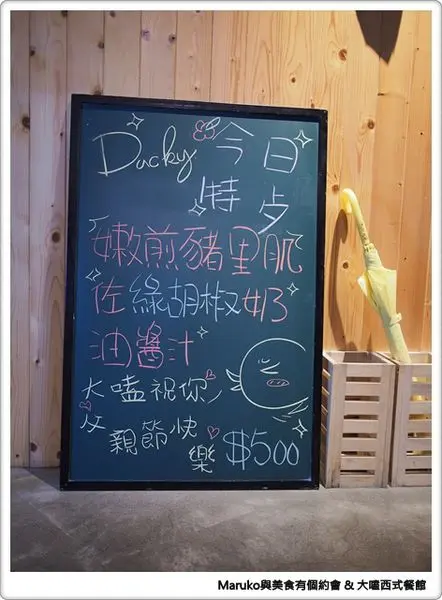 Ducky 今日
特歺
嫩煎豬里肌
佐綠胡椒奶
油醬汁
大嗑祝你
父親節快
樂 $500
Maruko與美食有個約會 & 大嗑西式餐館